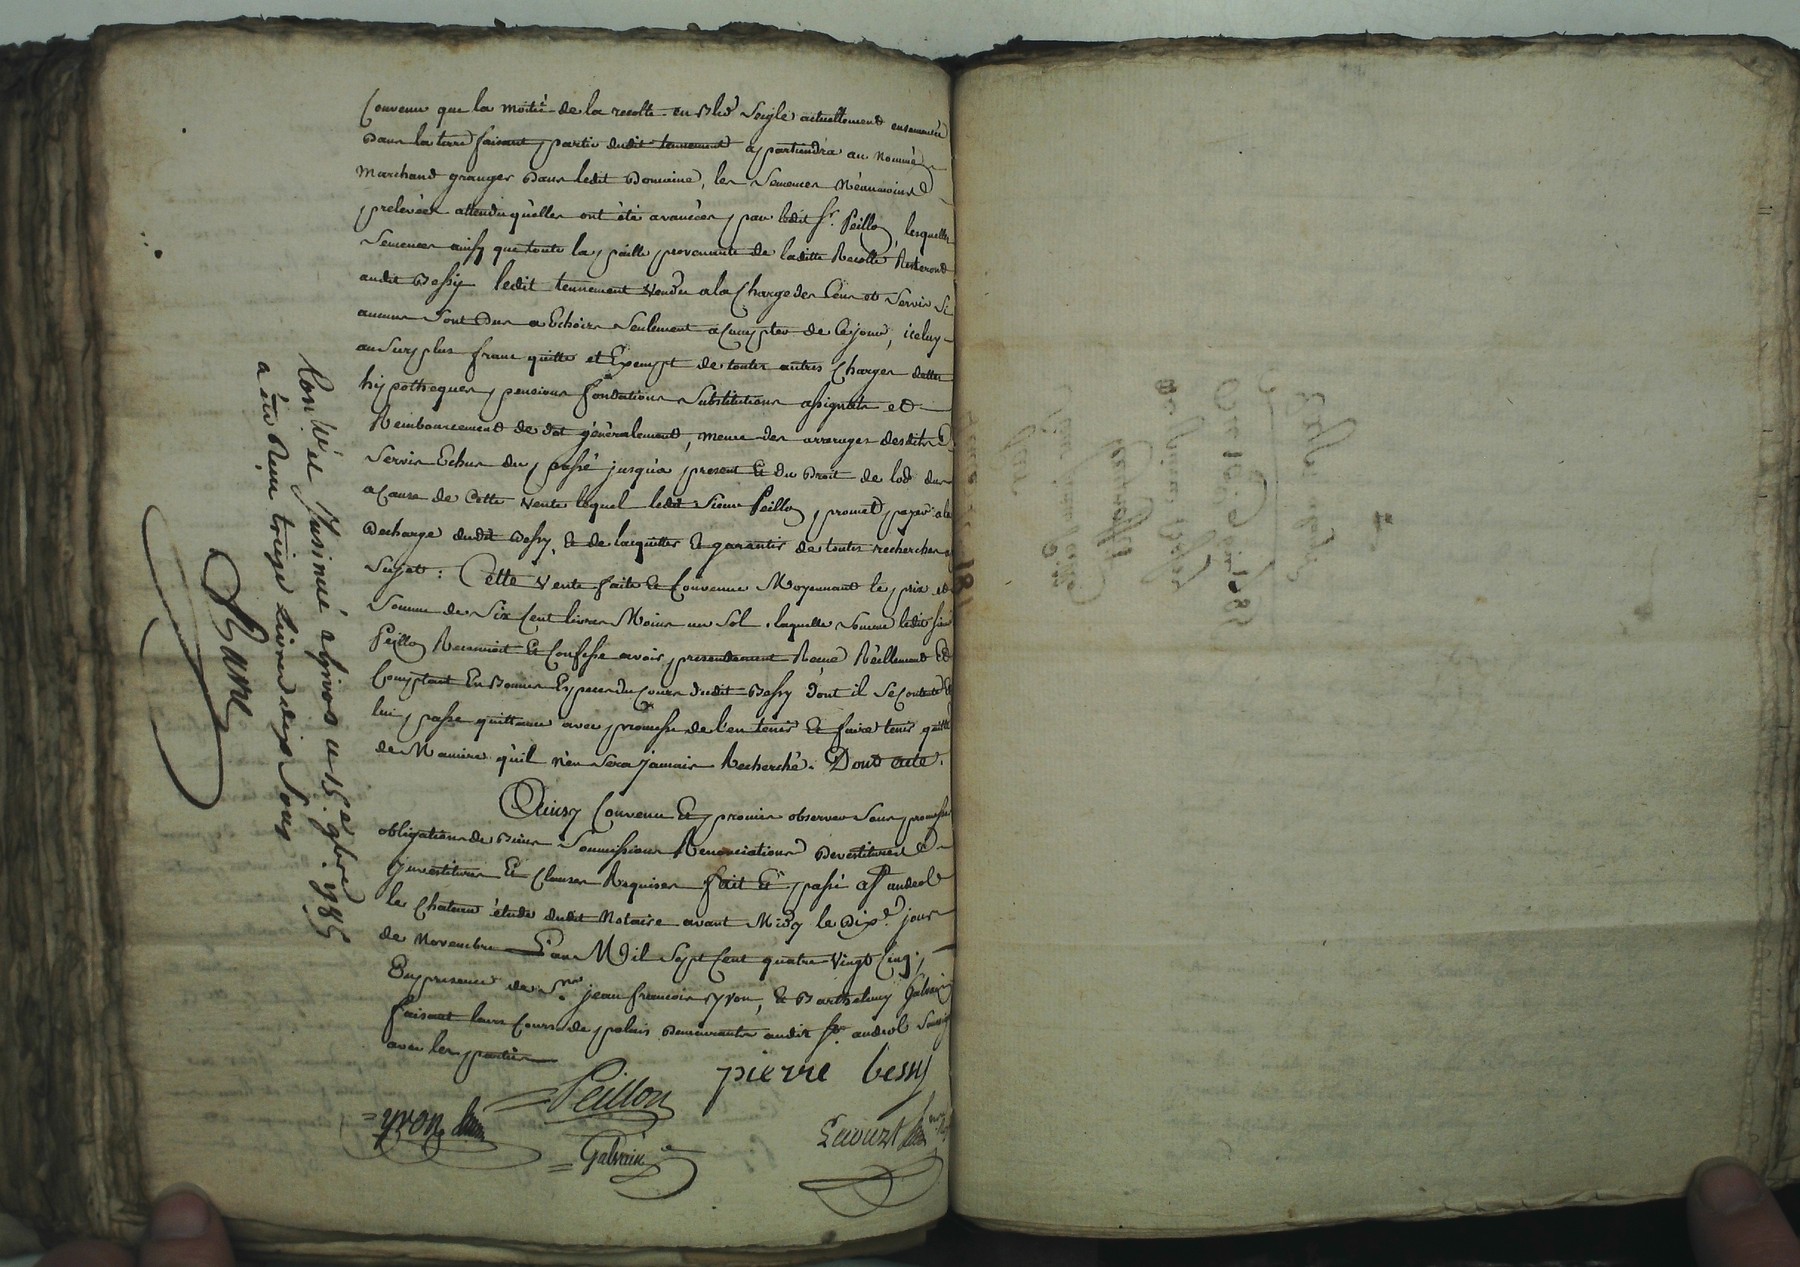 Convenu que la moitié de la recolte en Bled Seigle actuellement ensemencée
Dans la terre faisant partie dudit tennement appartiendra au nommé
Marchand granger Dans ledit Domaine, les Semences Néanmoins
prelevées attendu qu'elles ont été avancées par ledit Sr. Peillon lesquelles
Semences ainsy que toute la paille provenante de laditte Recolte Resteront
audit Bessy ledit tennement vendu a la Charge des Cens et Servis Si
aucuns Sont Dus a Echoir Seulement a Compter de Ce jour, iceluy
au Surplus franc quitte et Exempt de toutes autres Charges dettes
hipotheques pensions fondations Substitutions assignats et
Remboursement de dot généralement, meme des arrerages desdits
Servis Echus du passé jusqu'a present Et du Droit de lod dus
a Cause de Cette vente lequel ledit Sieur Peillon promet payer a la
Decharge dudit Bessy, Et de l'acquitter Et garantir de toutes recherches
Sujet : Cette vente faite Et Convenue Moyennant le prix et
Somme de Six Cent livres Moins un Sol, laquelle Somme ledit Sieur
Peillon Reconnoit Et Confesse avoir presentement Receue Réellement Et
Comptant En Bonnes Especes du Cours dudit Bessy dont il Se Contente Et
lui passe quittance avec promesse de l'en tenir Et faire tenir quitte
de Maniere qu'il n'en Sera jamais Recherché. Dont acte.
Ainsy Convenu Et promis observer Sous promesses
obligations de Biens Soumissions Renonciations Devestitures
Investitures Et Clauses Requises fait Et passé a St. andeol
le Chateau étude dudit Notaire avant Midy le Dixe. jour
de Novembre L'an Mil Sept Cent quatre vingt Cinq,
En presence de Sr. jean francois yvon, Et Barthelemy Galvain
faisant leurs Cours de palais Demeurants audit St. andeol
avec les parties
pierre bessy
Peillon
yvon
Galvain
Con.lé et Insinué a Givors le 15e. 9bre. 1785
a été Reçu treize livres dix Sous